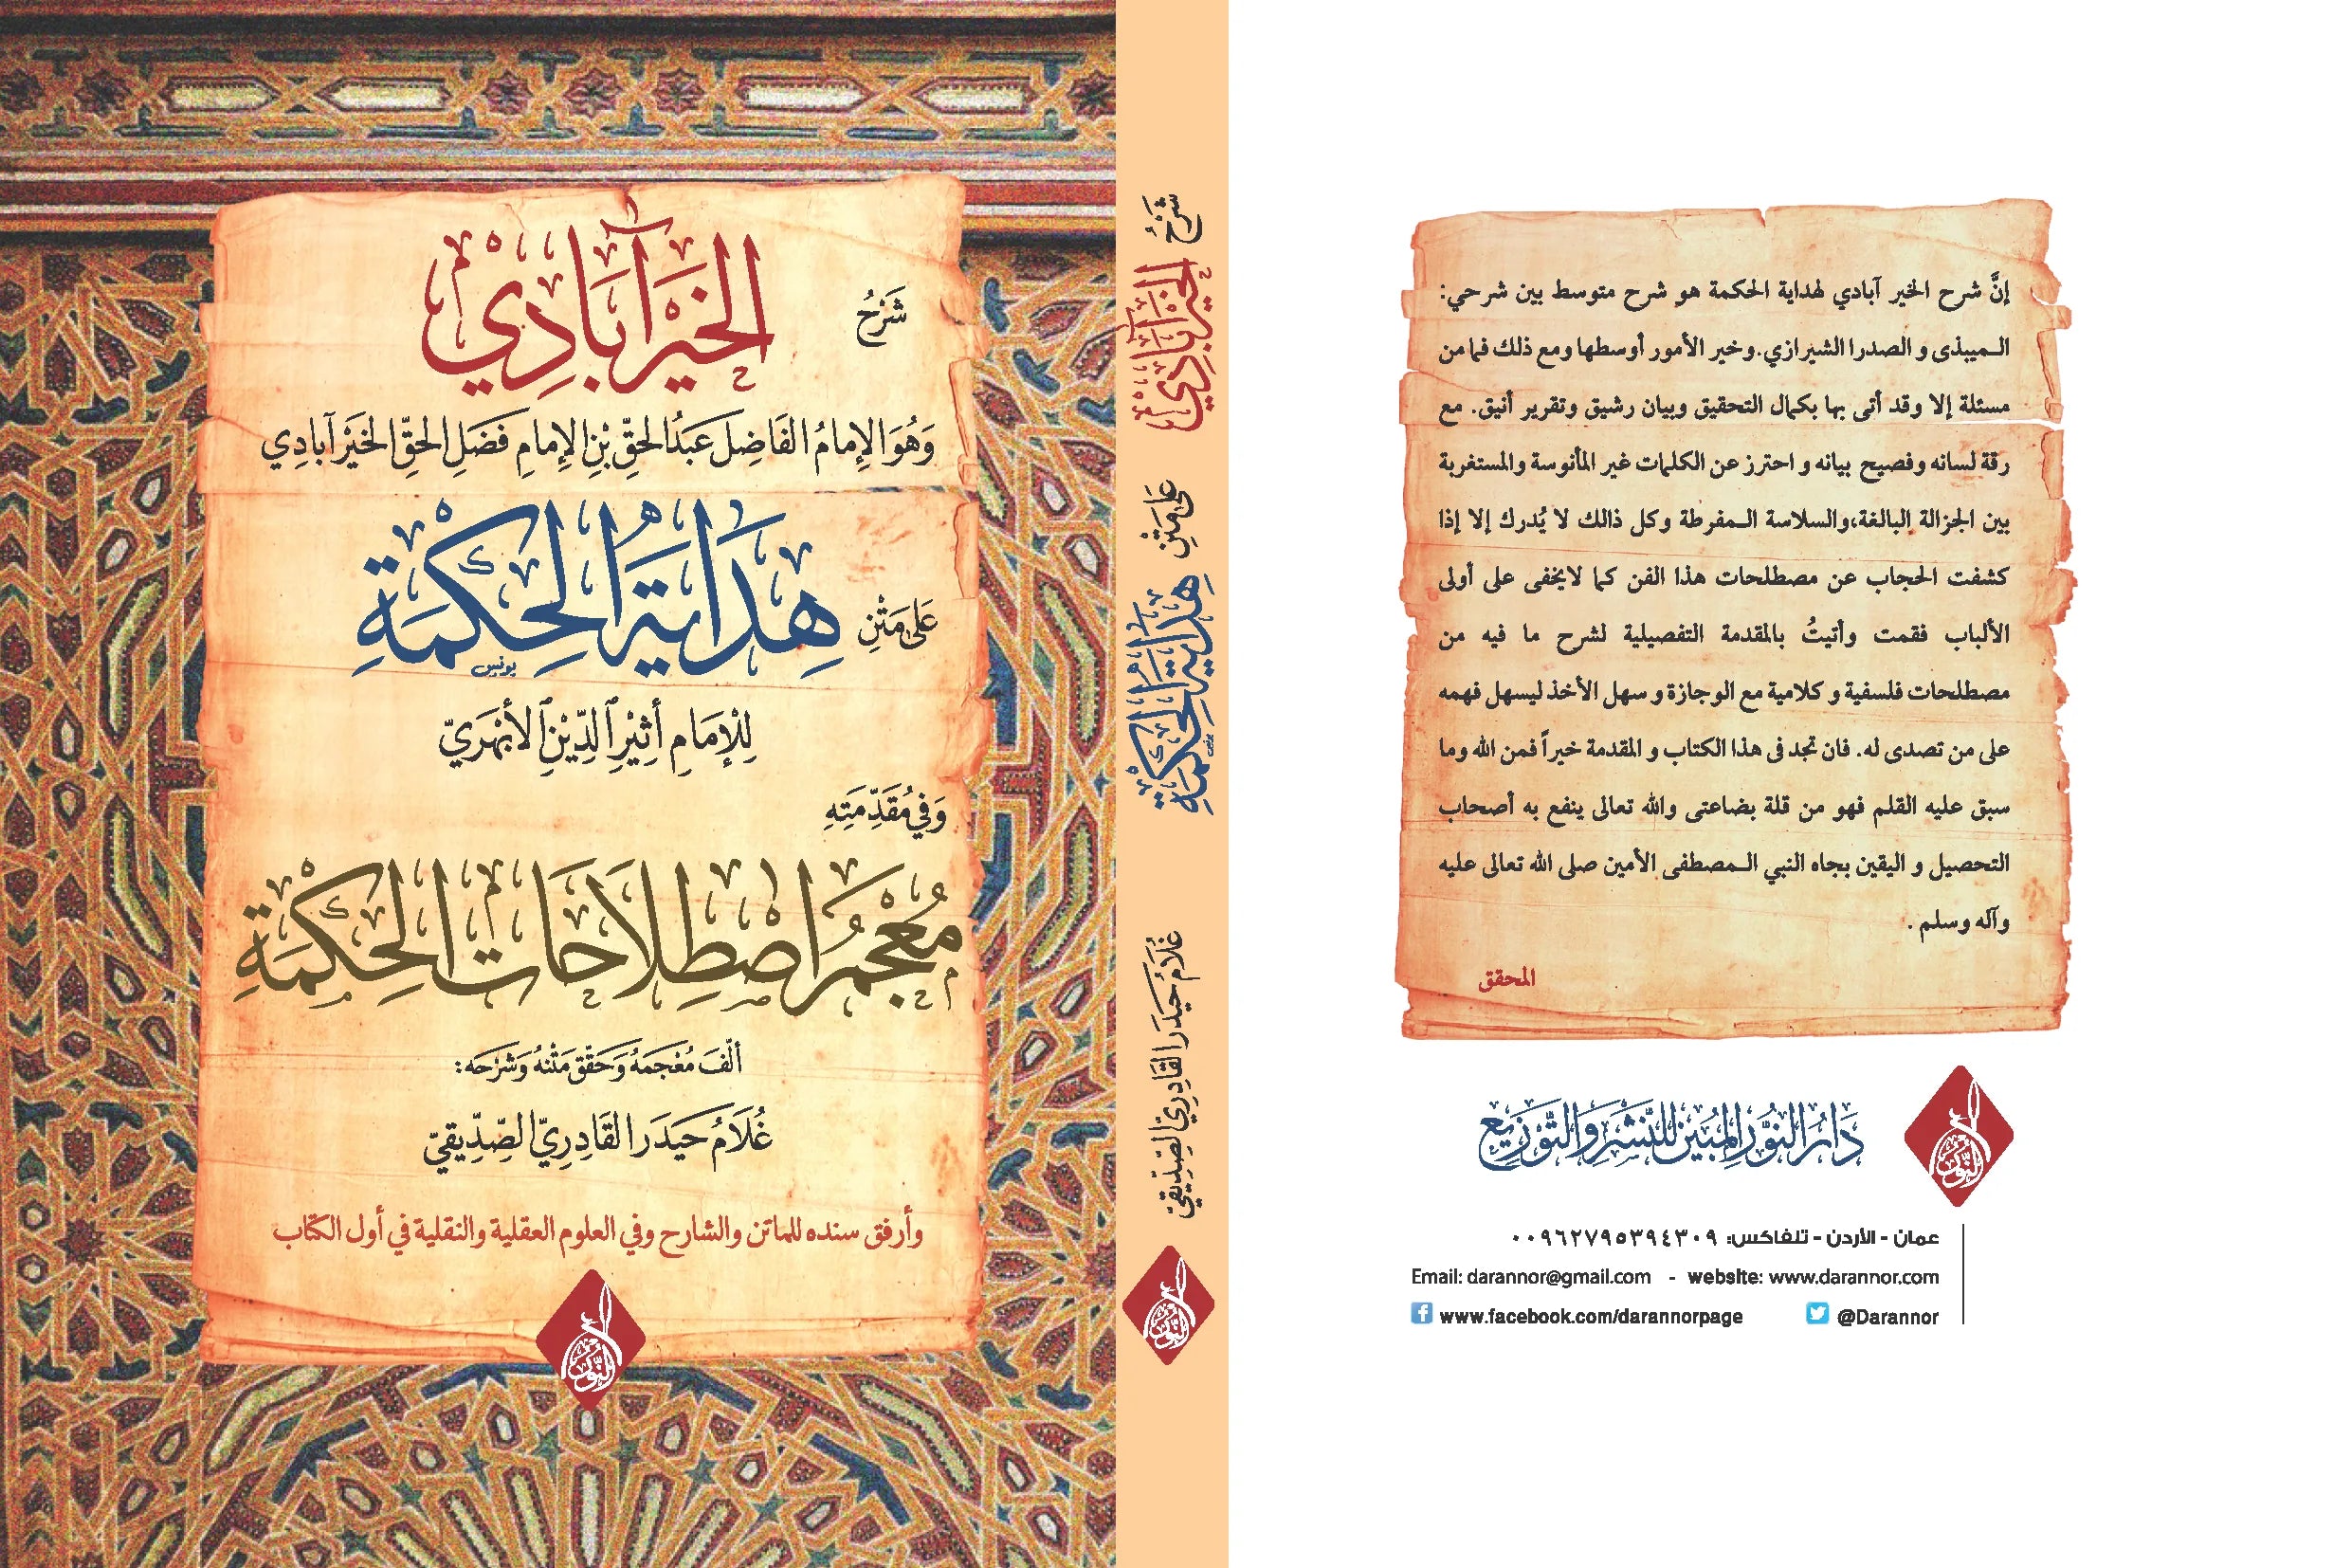 شَرْحُ
الخَيْرآبَادِيْ
وَهُوَ الإِمامُ الفَاضِلَ عَبَدُ الحَقِّ بْنِ الإِمامِ فَضَلِ الحَقِّ الخَيْرآبادِي
عَلى مَتْنِ
هِدَايَةُ الْحِكْمَةِ
يونس
لِلْإِمَامِ أَثِيْرِ ٱلدِّيْنِ ٱلأَبْهَرَيّ
وَفِي مُقَدِّمَتِهِ
مُعْجَمُ اصْطِلَاحَاتِ الْحِكْمَةِ
ألّفَ مُعْجَمَهُ وَحَقّقَ مَتْنهُ وَشَرْحَه:
غُلَامُ حَيدَر القَادِرِيّ الصِّدِّيقيّ
وأرفق سنده للماتن والشارح وفي العلوم العقلية والنقلية في أول الكتاب
النّور
شَرْحُ
الخَيْرآبَادِيْ
عَلى مَتْنِ
هِدَايَةُ الْحِكْمَةِ
يونس
غُلَامُ حَيدَر القَادِرِيّ الصِّدِّيقيّ
النّور
إنَّ شرح الخير آبادي لهداية الحكمة هو شرح متوسط بين شرحي:
الـميبذى و الصدرا الشيرازي.وخير الأمور أوسطها ومع ذلك فما من
مسئلة إلا وقد أتى بها بكمال التحقيق وبيان رشيق وتقرير أنيق. مع
رقة لسانه وفصيح بيانه و احترز عن الكلمات غير المأنوسة والمستغربة
بين الجزالة البالغة،والسلاسة الـمفرطة وكل ذالك لا يُدرك إلا إذا
كشفت الحجاب عن مصطلحات هذا الفن كما لايخفى على أولى
الألباب فقمت وأتيتُ بالمقدمة التفصيلية لشرح ما فيه من
مصطلحات فلسفية و كلامية مع الوجازة و سهل الأخذ ليسهل فهمه
على من تصدى له. فان تجد فى هذا الكتاب و المقدمة خيراً فمن الله وما
سبق عليه القلم فهو من قلة بضاعتى والله تعالى ينفع به أصحاب
التحصيل و اليقين بجاه النبي الـمصطفى الأمين صلى الله تعالى عليه
وآله وسلم .
المحقق
دَارُ النُّورِ المُبِين لِلنَّشْرِ وَالتَّوْزِيع
النّور
عمان - الأردن - تلفاكس: ٠٠٩٦٢٧٩٥٣٩٤٣٠٩
Email: darannor@gmail.com - website: www.darannor.com
www.facebook.com/darannorpage @Darannor